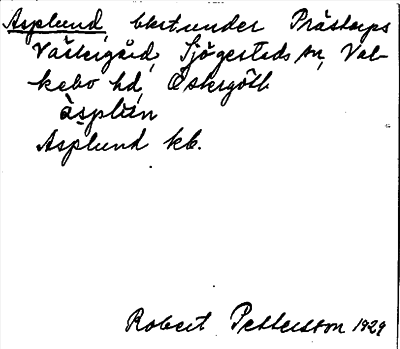 Asplund, bkst. under Prästorps
Västergård, Sjögestads sn, Val-
kebo hd, Östergötl.
àsplɯn
Asplund kb.
Robert Pettersson 1929